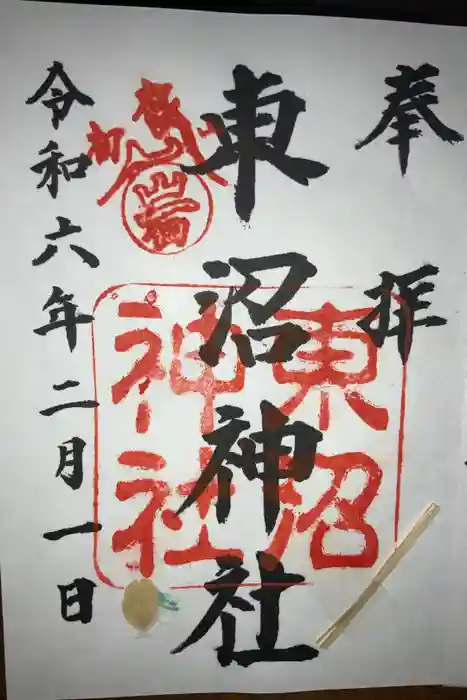 奉拝
東沼神社
東沼
神社
令和六年二月一日